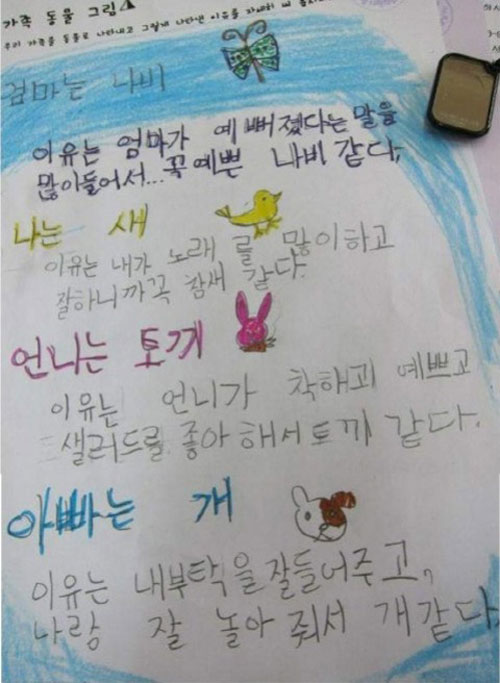 가족 동물 그림
우리 가족을 동물로 나타내고 그렇게 나타낸 이유를 자세히 써
엄마는 나비
이유는 엄마가 예뻐졌다는 말을
많이들어서...꼭예쁜 나비 같다,
나는 새
이유는 내가 노래 를 많이하고
잘하니까꼭 참새 같다.
언니는 토끼
이유는 언니가 착해고 예쁘고
샐러드를 좋아 해서토끼 같다.
아빠는 개
이유는 내부탁을잘들어주고,
나랑 잘 놀아 줘서 개같다.